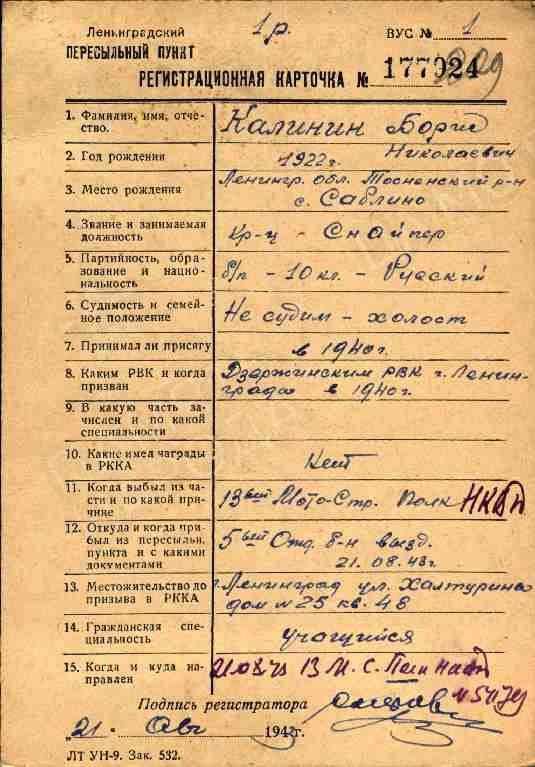 Ленинградский
ПЕРЕСЫЛЬНЫЙ ПУНКТ
1 р.
ВУС № 1
РЕГИСТРАЦИОННАЯ КАРТОЧКА № 177024
1. Фамилия, имя, отчество. Калинин Борис
Николаевич
2. Год рождения 1922 г.
3. Место рождения Ленингр. обл. Тосненский р-н
с. Саблино
4. Звание и занимаемая должность кр-ц - Снайпер
5. Партийность, образование и национальность б/п - 10 кл. - Русский
6. Судимость и семейное положение Не судим - холост
7. Принимал ли присягу в 1940 г.
8. Каким РВК и когда призван Дзержинским РВК г. Ленин-
града в 1940 г.
9. В какую часть зачислен и по какой специальности
10. Какие имел награды в РККА Нет
11. Когда выбыл из части и по какой причине 13ый Мото-Стр. Полк НКВД
12. Откуда и когда прибыл из пересыльн. пункта и с какими документами 5ый Отд. б-н выезд.
21.08.43 г.
13. Местожительство до призыва в РККА г. Ленинград ул. Халтурина
дом № 25 кв. 48
14. Гражданская специальность учащийся
15. Когда и куда направлен 21 08 43 13 М. С. Полк
Подпись регистратора
„21" Авг 1943 г.
ЛТ УН-9. Зак. 532.